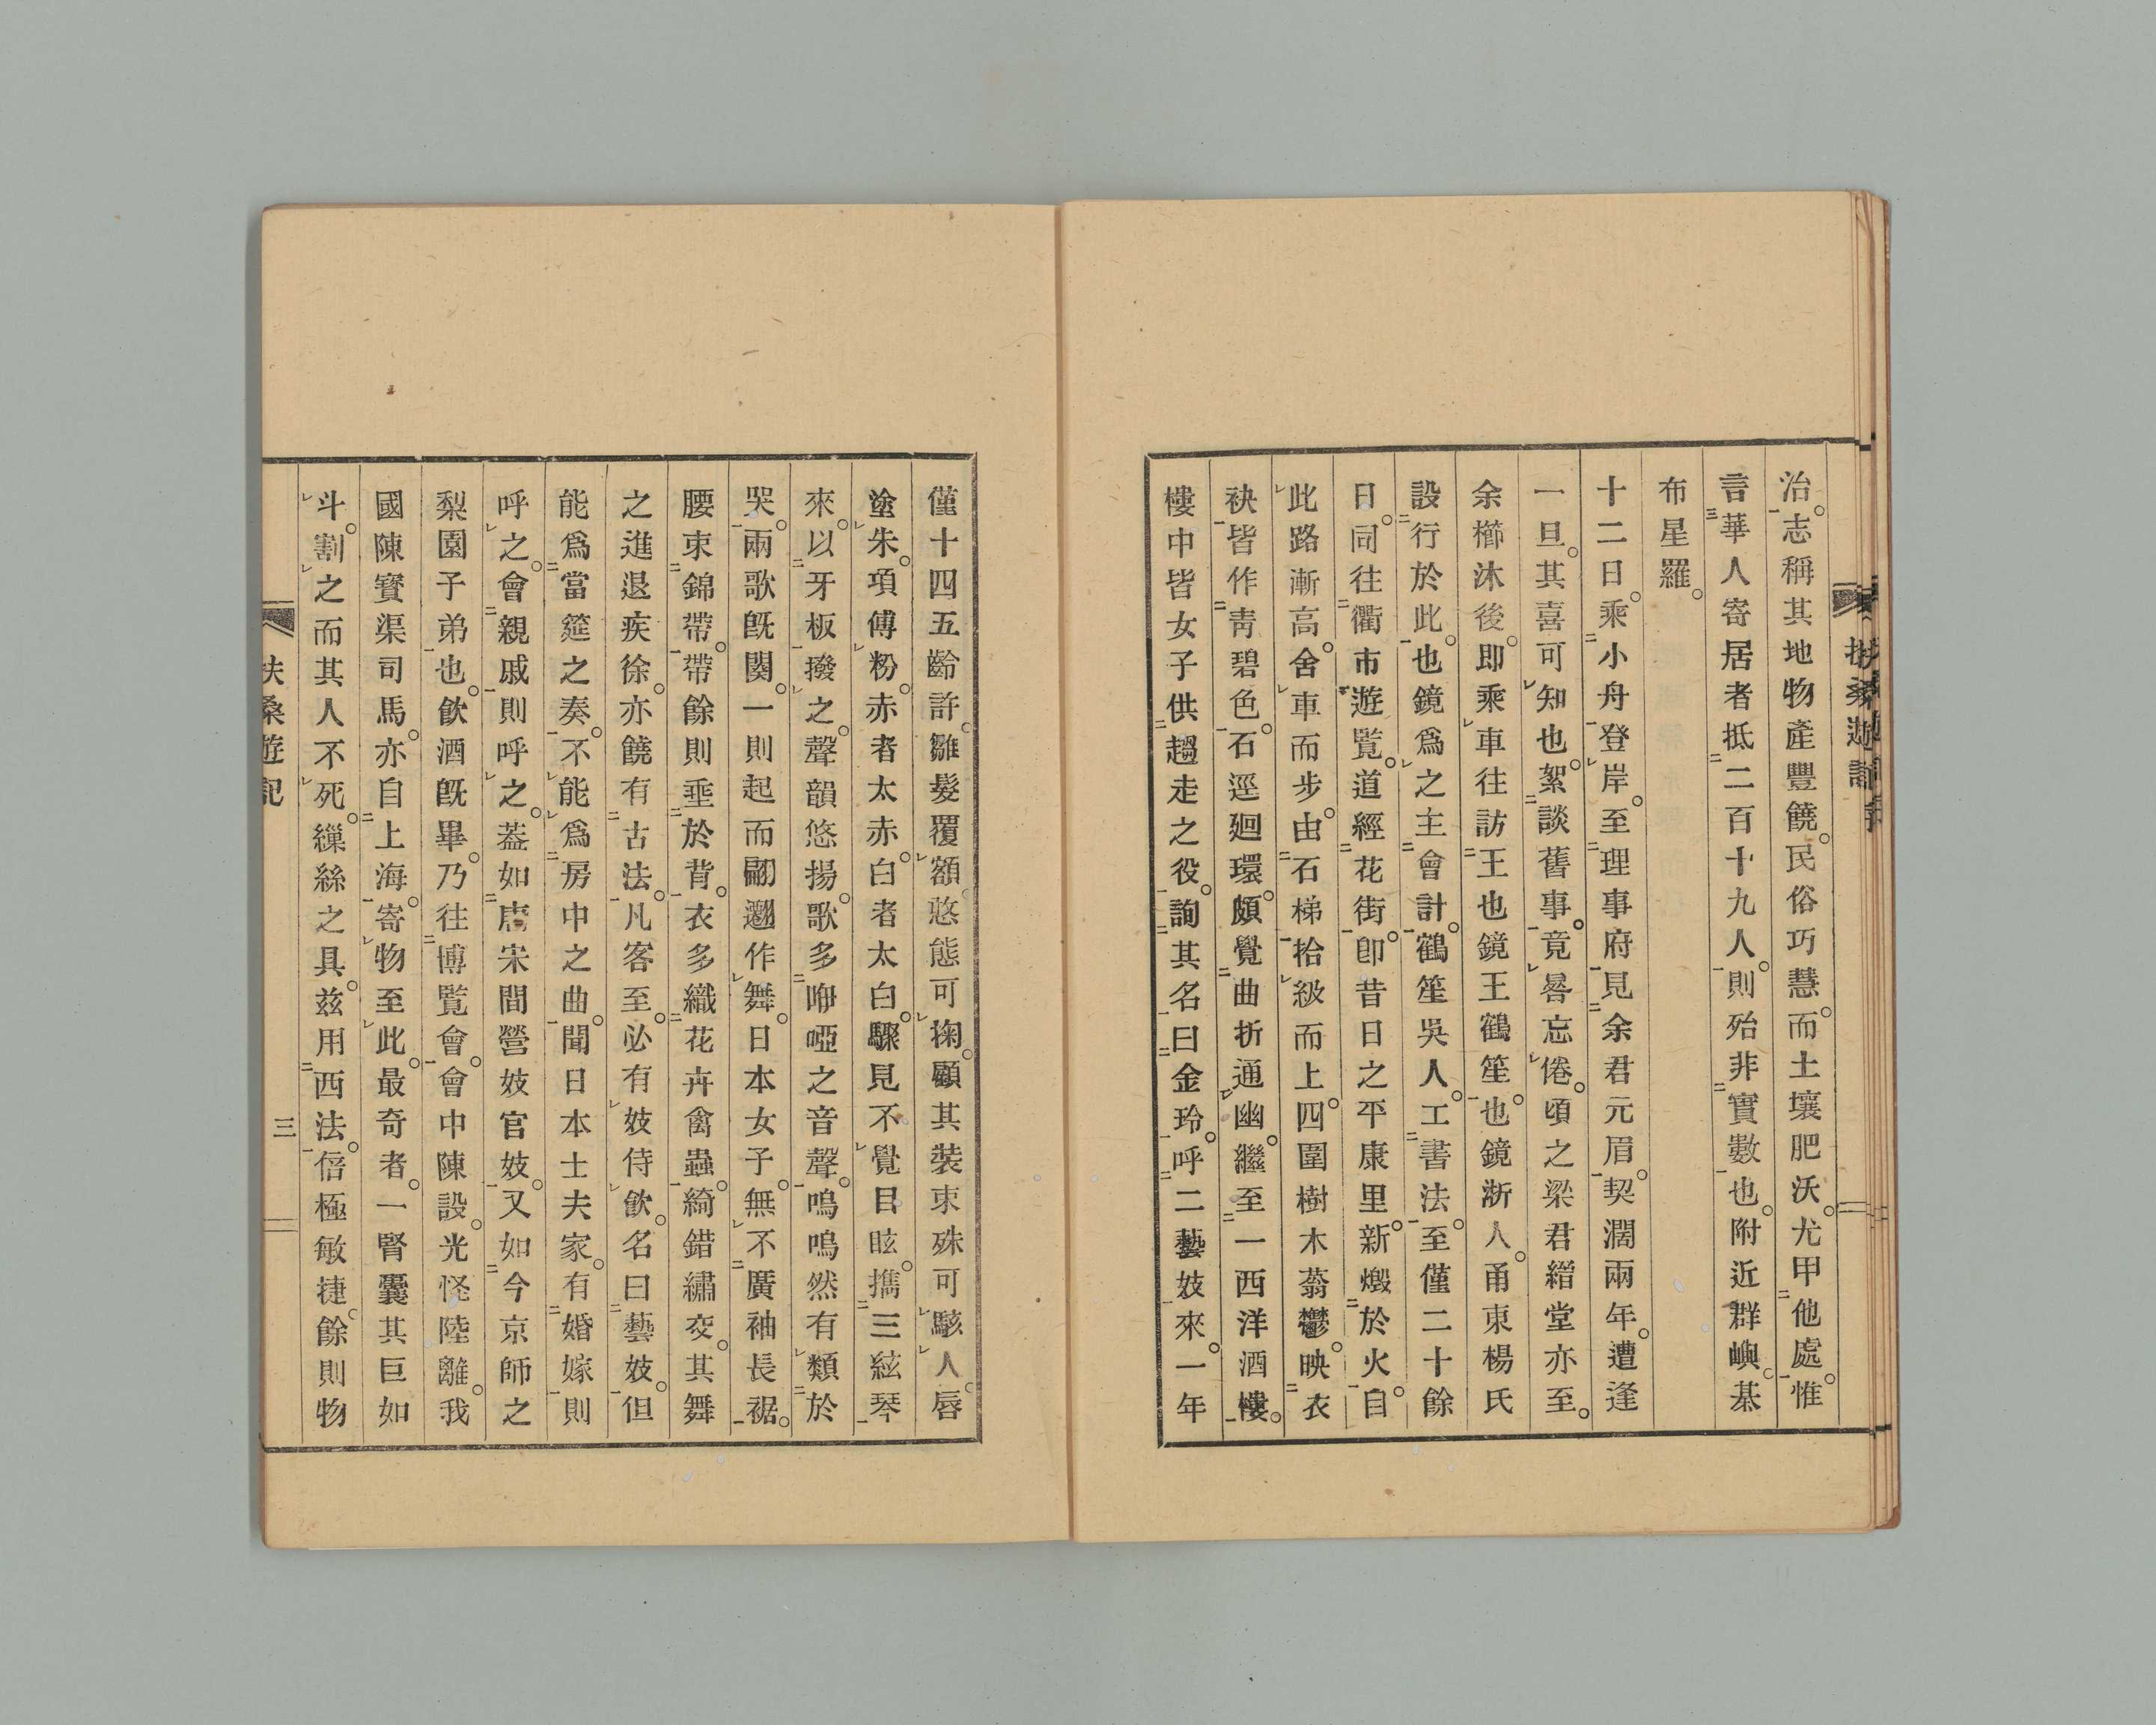 治。志稱其地物產豐饒。民俗巧慧。而土壤肥沃。尤甲他處。惟
言華人寄居者抵二百十九人。則殆非實數也。附近群嶼。棊
布星羅。
十二日。乘小舟登岸。至理事府見余君元眉。契濶兩年。遭逢
一旦。其喜可知也。絮談舊事。竟晷忘倦。頃之梁君縉堂亦至。
余櫛沐後。卽乘車往訪王也鏡王鶴笙。也鏡浙人。甬東楊氏
設行於此。也鏡爲之主會計。鶴笙吳人。工書法。至僅二十餘
日。同往衢市遊覧。道經花街。卽昔日之平康里。新燬於火。自
此路漸高。舍車而步。由石梯拾級而上。四圍樹木蓊鬱。映衣
袂皆作靑碧色。石逕廻環。頗覺曲折通幽。繼至一西洋酒樓。
樓中皆女子供趨走之役。詢其名曰金玲。呼二藝妓來。一年
僅十四五齡許。雛髮覆額。憨態可掬。顧其裝束殊可駭人。唇
塗朱。項傅粉。赤者太赤。白者太白。驟見不覺目眩。攜三絃琴
來。以牙板撥之。聲韻悠揚。歌多咿啞之音聲。嗚嗚然有類於
哭。兩歌旣闋。一則起而翩躚作舞。日本女子。無不廣袖長裾。
腰束錦帶。帶餘則垂於背。衣多織花卉禽蟲。綺錯繡交。其舞
之進退疾徐。亦饒有古法。凡客至。必有妓侍飮。名曰藝妓。但
能爲當筵之奏。不能爲房中之曲。聞日本士夫家。有婚嫁則
呼之。會親戚則呼之。葢如唐宋間營妓官妓。又如今京師之
梨園子弟也。飮酒旣畢。乃往博覧會。會中陳設。光怪陸離。我
國陳寳渠司馬。亦自上海。寄物至此。最奇者。一腎囊其巨如
斗。割之而其人不死。繅絲之具。茲用西法。倍極敏捷。餘則物
扶桑遊記
三